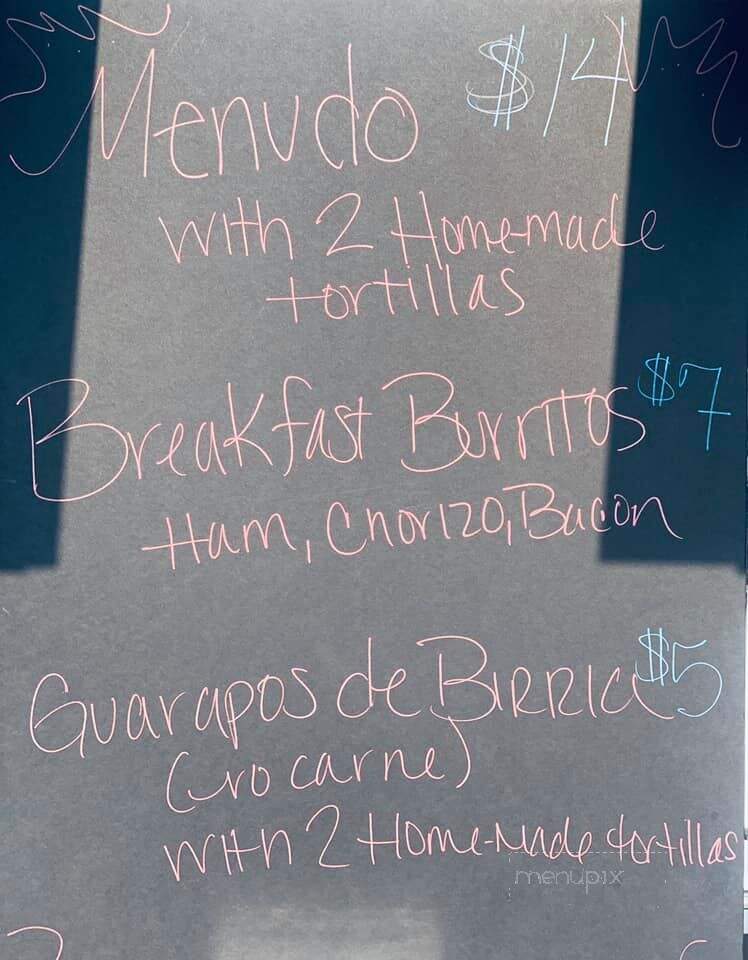 Menudo $14
with 2 Home-made
tortillas
Breakfast Burritos $7
Ham, Chorizo, Bacon
Guarapos de Birria $5
(no carne)
with 2 Home-Made tortillas
menupix